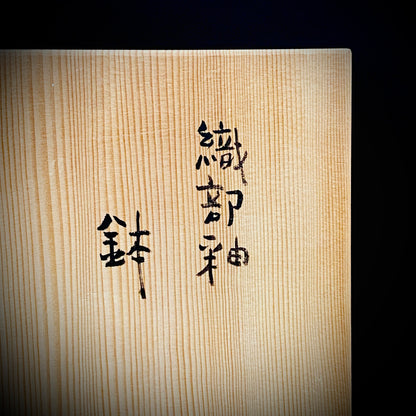 織部釉
鉢